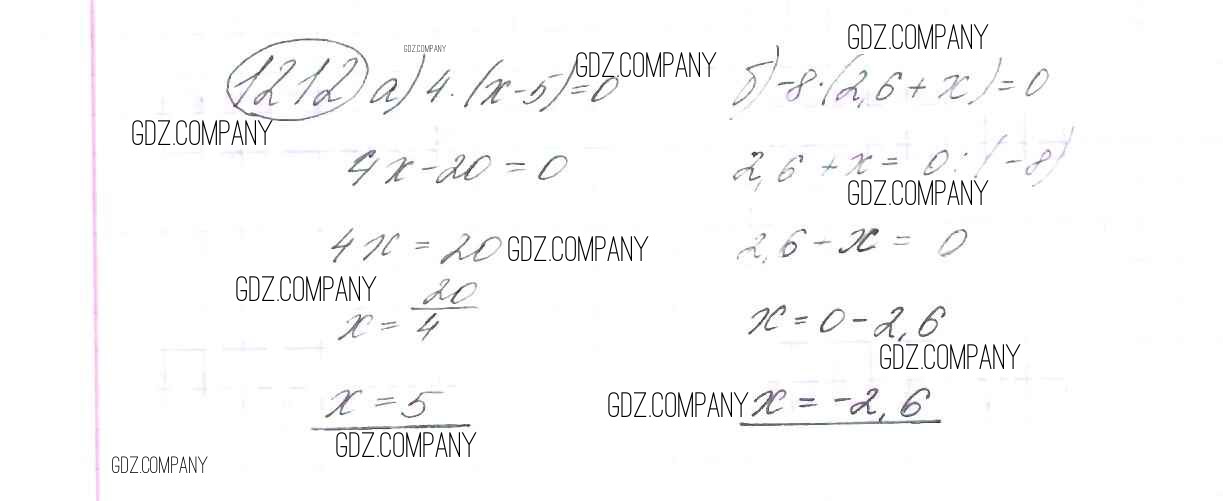 GDZ.COMPANY
GDZ.COMPANY
GDZ.COMPANY
1212 а) 4·(x-5)=0
б) -8·(2,6+x)=0
GDZ.COMPANY
4x-20=0
2,6+x=0:(-8)
GDZ.COMPANY
4x=20
GDZ.COMPANY
2,6-x=0
GDZ.COMPANY
x=20/4
x=0-2,6
GDZ.COMPANY
x=5
GDZ.COMPANY
x=-2,6
GDZ.COMPANY
GDZ.COMPANY